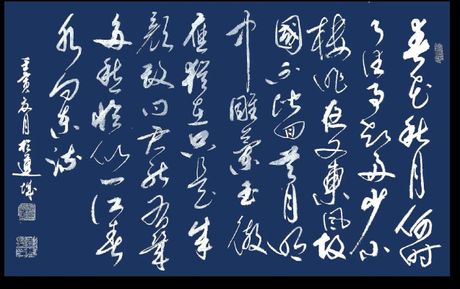 春花秋月何时
了往事知多少小
楼昨夜又東風故
國不堪回首月明
中雕闌玉砌
應猶在只是朱
顏改问君能有幾
多愁恰似一江春
水向東流
壬寅